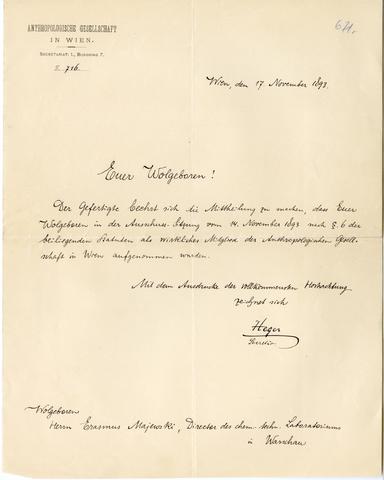 ANTHROPOLOGISCHE GESELLSCHAFT
IN WIEN.
SECRETARIAT: I., BURGRING 7.
Z. 716.
671.
Wien, den 17. November 1893.
Euer Wolgeboren!
Der Gefertigte beehrt sich die Mittheilung zu machen, dass Euer
Wolgeboren in der Ausschuss-Sitzung vom 14. November 1893 nach §. 6 der
beiliegenden Statuten als wirkliches Mitglied der Anthropologischen Gesell-
schaft in Wien aufgenommen wurden.
Mit dem Ausdrucke der vollkommensten Hochachtung
zeichnet sich
Heger
Secretär
Wolgeboren
Herrn Erasmus Majewski, Director des chem. techn. Laboratoriums
in Warschau